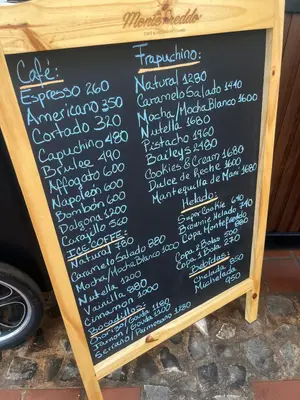 Monte Freddo
Café:
Espresso 260
Americano 350
Cortado 320
Capuchino 480
Brulee 490
Affogato 600
Napoleón 600
Bombón 600
Dalgona 1200
Carajillo 560
ICE COFFEE:
Natural 780
Caramelo Salado 880
Mocha/Mocha Blanco 1000
Nutella 1200
Vainilla 880
Cinnamon 1000
Bocadillos:
Chorizo/Gouda 1180
Jamon/Gouda 1100
Serrano/Parmesano 1280
Frapuchino:
Natural 1280
Caramelo Salado 1440
Mocha/Mocha Blanco 1600
Nutella 1680
Pistacho 1960
Baileys 2480
Cookies & Cream 1680
Dulce de Leche 1600
Mantequilla de Mani 1680
Helado:
Super Cookie 640
Brownie Helado 740
Copa MonteFreddo 880
Copa 2 Bolas 500
Copa 1 Bola 230
Bebidas:
Chelada 850
Michelada 950